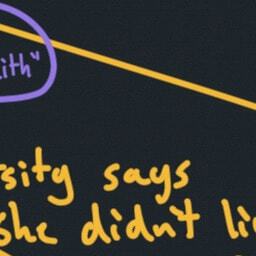 ith"
sity says
she didn't li